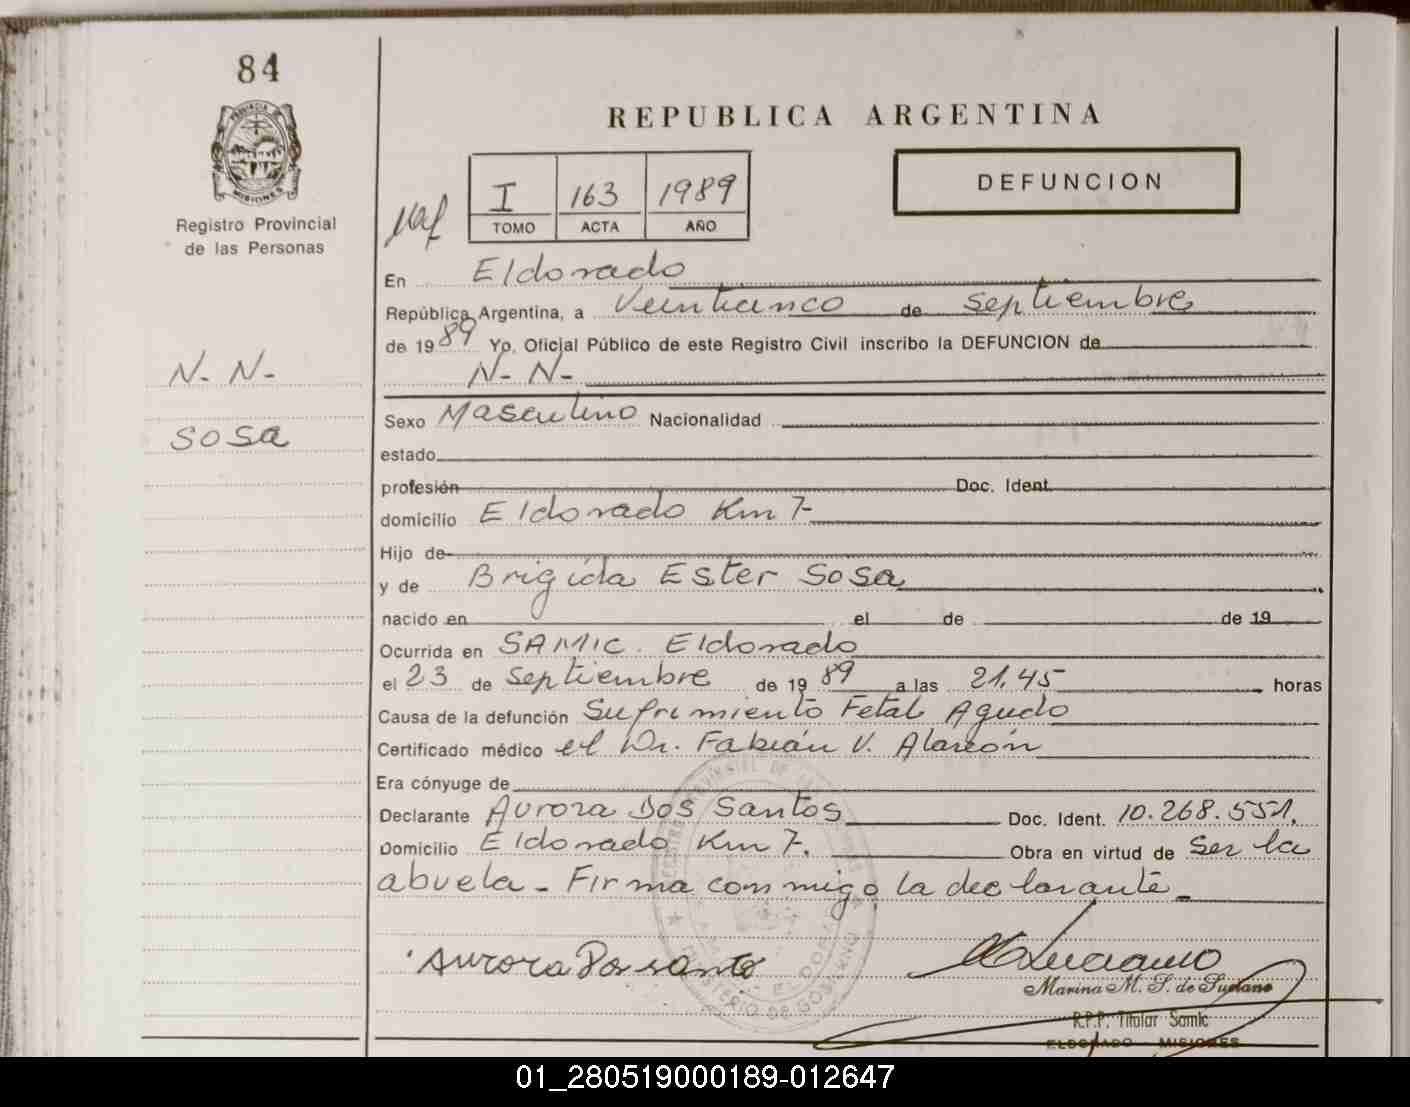 84
PROVINCIA DE
MISIONES
Registro Provincial
de las Personas
N. N.
SOSA
REPUBLICA ARGENTINA
I 163 1989
TOMO ACTA AÑO
DEFUNCION
En Eldorado
República Argentina, a Veinticinco de Septiembre
de 1989 Yo, Oficial Público de este Registro Civil inscribo la DEFUNCION de
N- N-
Sexo Masculino Nacionalidad
estado
profesión Doc. Ident.
domicilio Eldorado Km 7-
Hijo de
y de Brigida Ester Sosa
nacido en el de de 19
Ocurrida en SAMIC. Eldorado
el 23 de Septiembre de 1989 a las 21.45 horas
Causa de la defunción Sufrimiento Fetal Agudo
Certificado médico el Dr. Fabián V. Alarcón
Era cónyuge de
Declarante Aurora Dos Santos Doc. Ident. 10.268.551.
Domicilio Eldorado Km 7. Obra en virtud de Ser la
abuela - Firma conmigo la declarante -
Aurora Dos santo
Marina M. de
R.P.P. Titular Samic
ELDORADO - MISIONES
MINISTERIO DE GOBIERNO
01_280519000189-012647